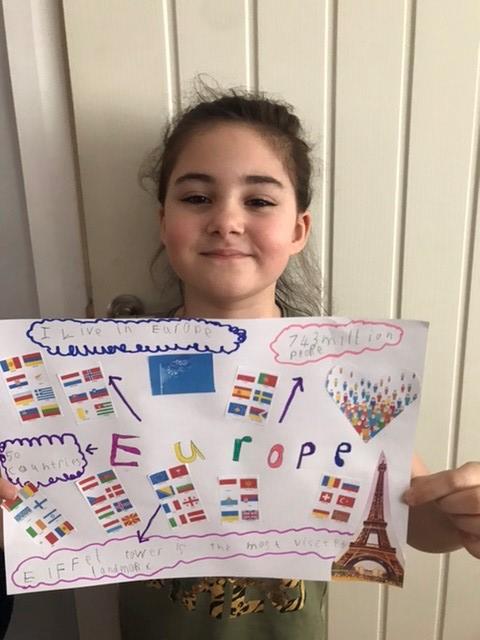 I Live in Europe
743 million
people
50
countries
Europe
EIFFel tower is the most visited
landmark